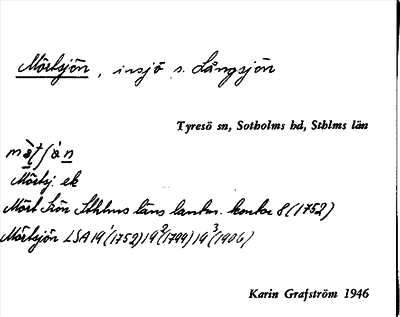 Mörtsjön, insjö s. Långsjön
Tyresö sn, Sotholms hd, Sthlms län
Mörtsj. ek
Mört Siön Sthlms läns lantm. kontor 8 (1752)
Mörtsjön LSA 19¹(1752) 19²(1799) 19³(1906)
Karin Grafström 1946